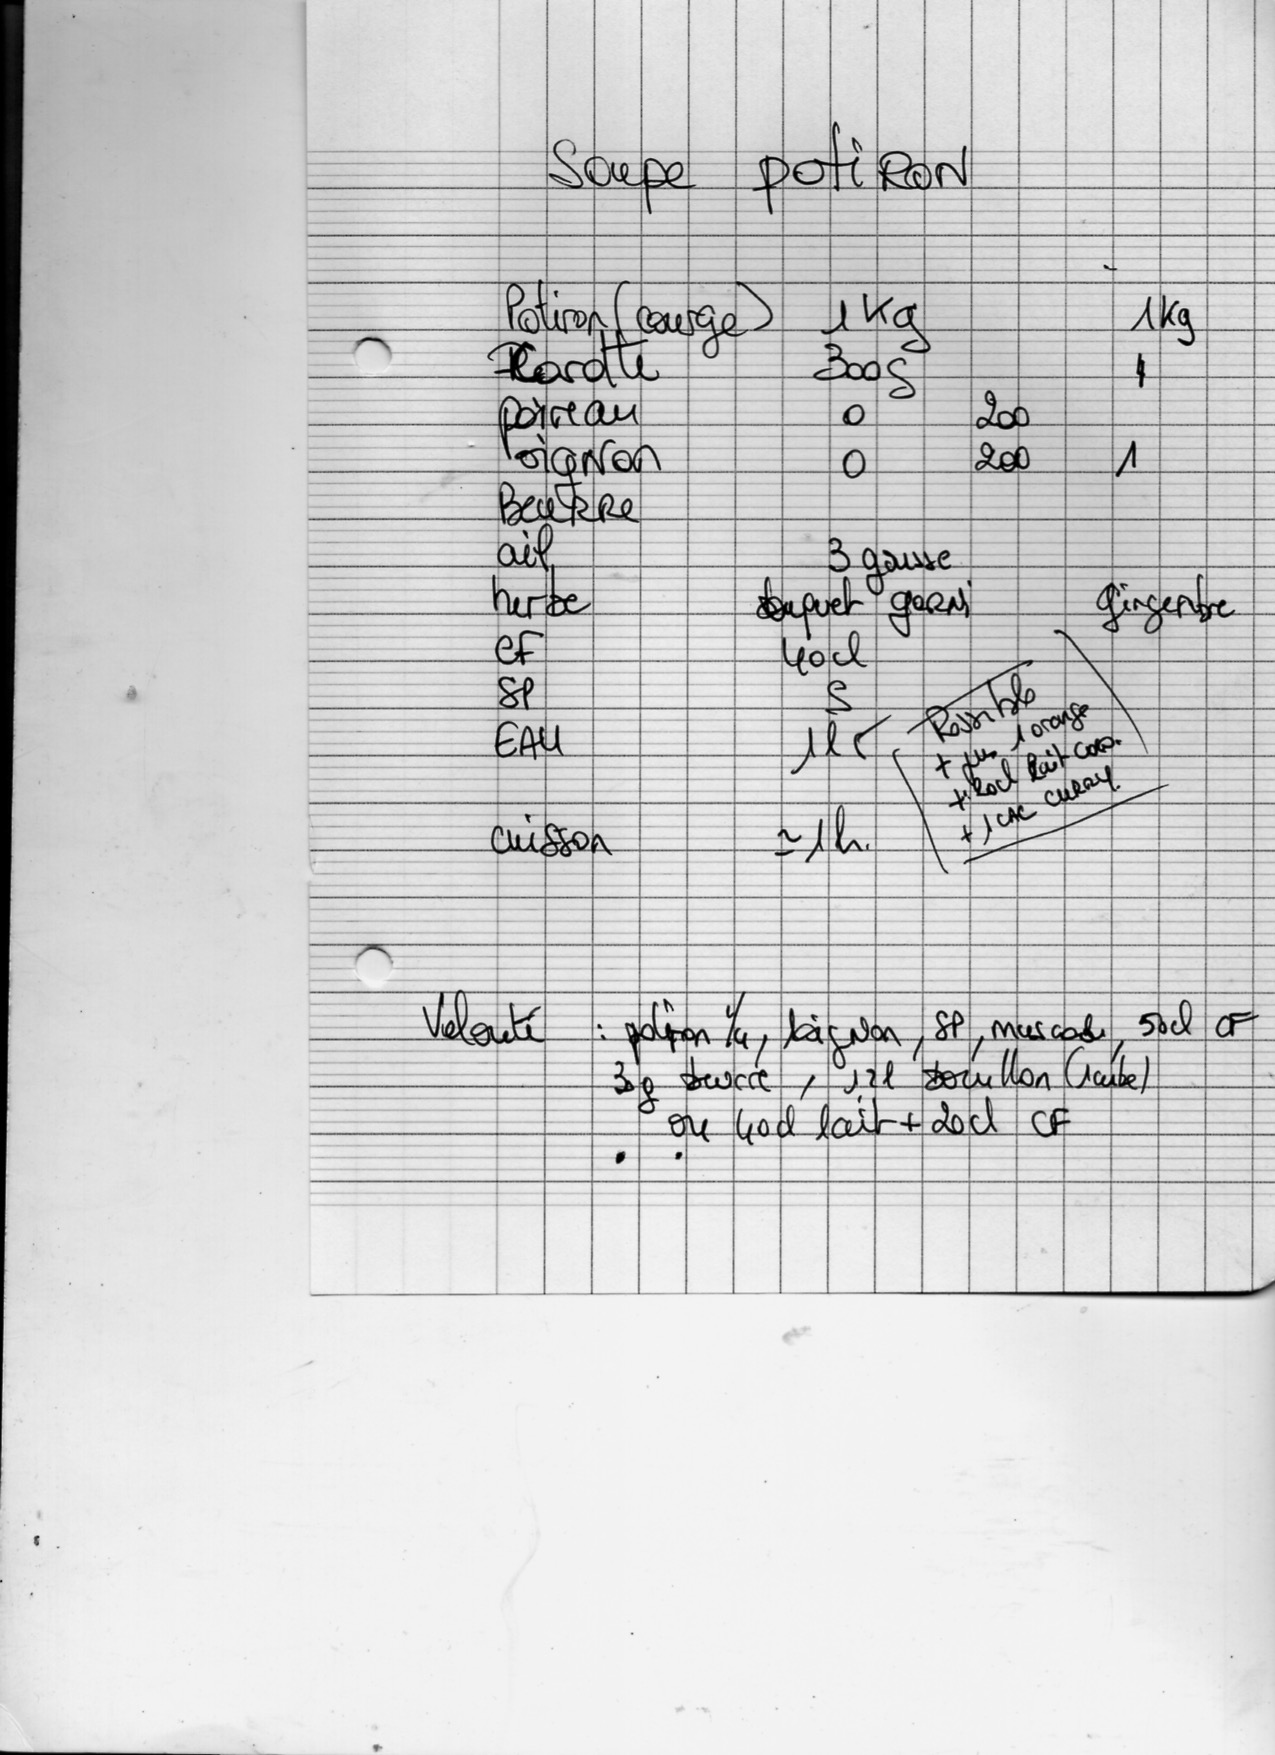 Soupe potiRON
Potiron (courge) 1 Kg 1 Kg
Carotte 300g 1
poireau 0 200
oignon 0 200 1
BeuRRe
ail 3 gousse
herbe bouquet gaRni gingembre
CF 40cl
SP S
EAU 1l5
Possible
+ jus 1 orange
+ 20cl lait coco.
+ 1 CAC CURRY.
cuisson ≃ 1h.
Velouté : potiron 1/4, 1 oignon, SP, muscade, 50cl CF
30g beurre, 12l bouillon (1 cube)
ou 40cl lait + 20cl CF